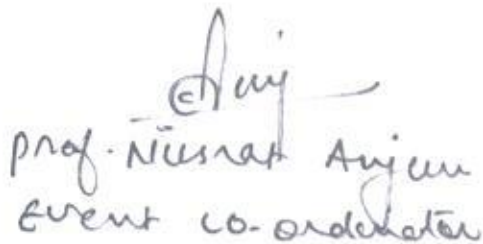 Prof. Nusrat Anjum
Event co-ordenator